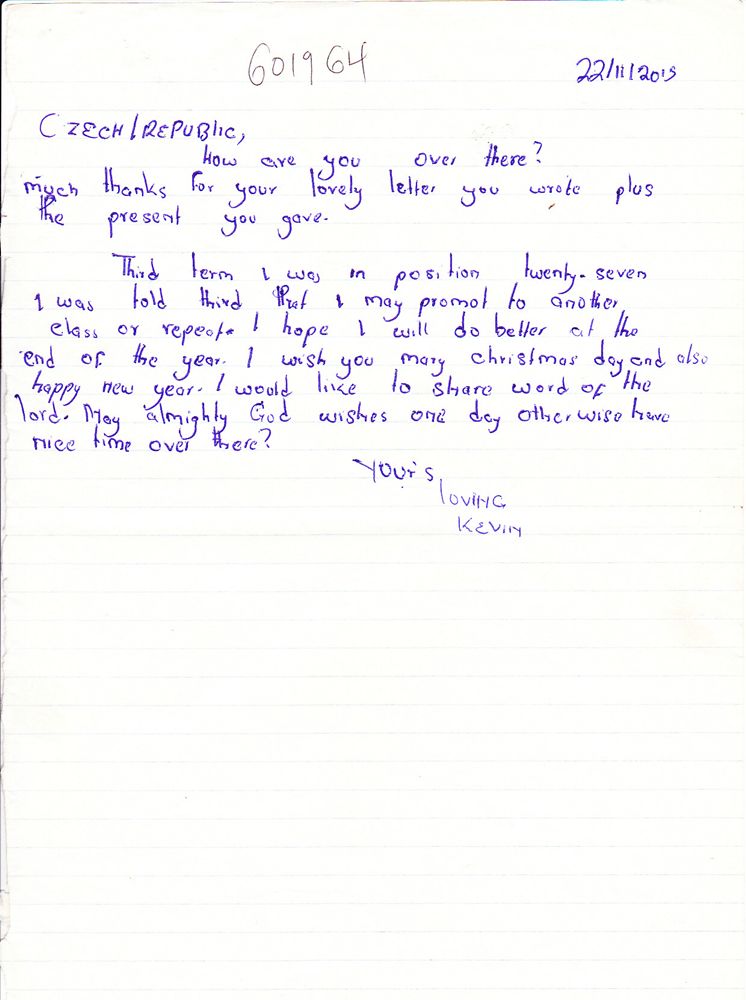 601964
22/11/2015
CZECH/REPUBLIC,
How are you over there?
much thanks for your lovely letter you wrote plus
the present you gave.
Third term I was in position twenty-seven
I was told third that I may promot to another
class or repeat. I hope I will do better at the
end of the year. I wish you mary christmas day and also
happy new year. I would like to share word of the
lord. May almighty God wishes one day otherwise have
nice time over there?
Your's
loving
KEVIN